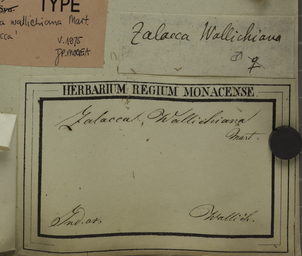 TYPE
wallichiana Mart.
V. 1975
Zalacca Wallichiana
♂ ♀
HERBARIUM REGIUM MONACENSE
Zalacca, Wallichiana
Mart.
Ind. or. Wallich.